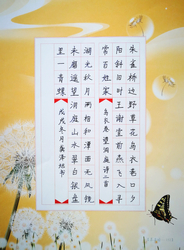 朱雀桥边野草花乌衣巷口夕
阳斜旧时王谢堂前燕飞入寻
常百姓家
乌衣巷望洞庭诗二首
湖光秋月两相和潭面无风镜
未磨遥望洞庭山水翠白银盘
里一青螺
戊戌冬月
书